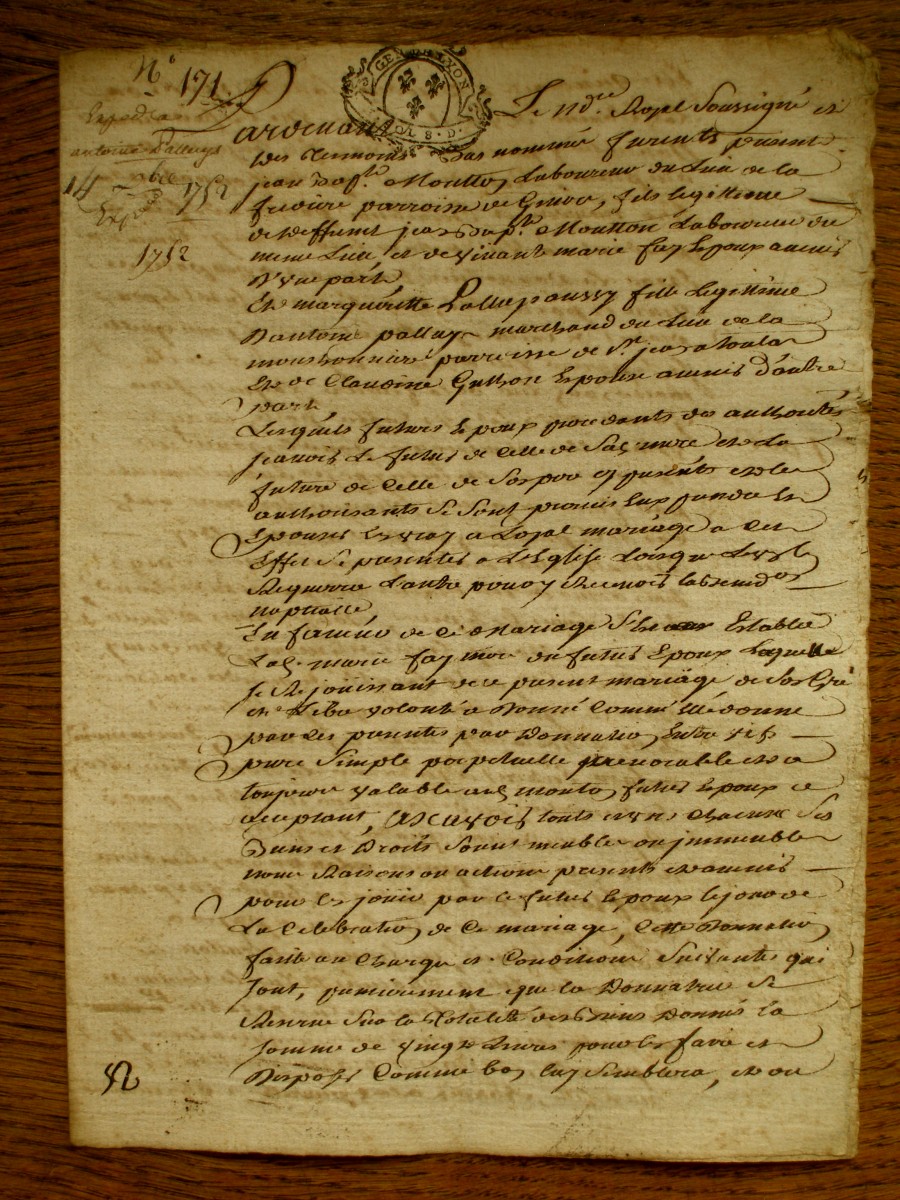 N° 171
GEN. DE LYON
SOL 8. D.
Expedié a
antoine Palluys
14 abre 1752
Expedié
1752
Pardevant Le no.re Royal Soussigné et
des temoins bas nommés furent present
jean Bap.te Moutton Laboureur du Lieu de la
parroisse de fils legittime
de deffunt jean Bap.te Moutton Laboureur du
meme Lieu et de vivante marie fay Lepoux avenir
D'une part
Et marguéritte fille Legitime
D'antoine marchand du Lieu de la
parroisse de S.t jean a
et de Claudine Epouse avenir d'autre
part
Lesquels futurs Epoux procedants des authorités
Le futur de Celle de Sad. mere et La
future de Celle de Son pere presents et Les
authorisants Se Sont promis Eux prendre En
Epoux En vray a Loyal mariage a Cet
Effet Se presenter a L'Eglise Lorsque L'un
Requerra L'autre pour y Recevoir la benediction
nuptialle
En faveur de Ce Mariage Etablie
Lad. marie fay mere du futur Epoux Laquelle
Se Rejoüissant de ce present mariage de Son gré
et Libre volonté a donné Comme Elle donne
par Les presentes par Donnation Entre vifs
pure Simple perpetuelle irrevocable et a
toujours valable aud. moutton futur Epoux
acceptant, ascavoir touts et uns chacuns Ses
Biens et Droits Soient meubles ou immeubles
noms Raisons ou actions presents et avenir
pour En joüir par Le futur Epoux Le jour de
La Celebration de Ce mariage, Cette Donnation
faite au Charges et Conditions Suivantes qui
Sont, premierement que la Donnatrice Se
Reserve Sur la totalité des Biens Donnés la
Somme de vingt Livres pour En faire et
Disposer Comme bon Luy Semblera, et au